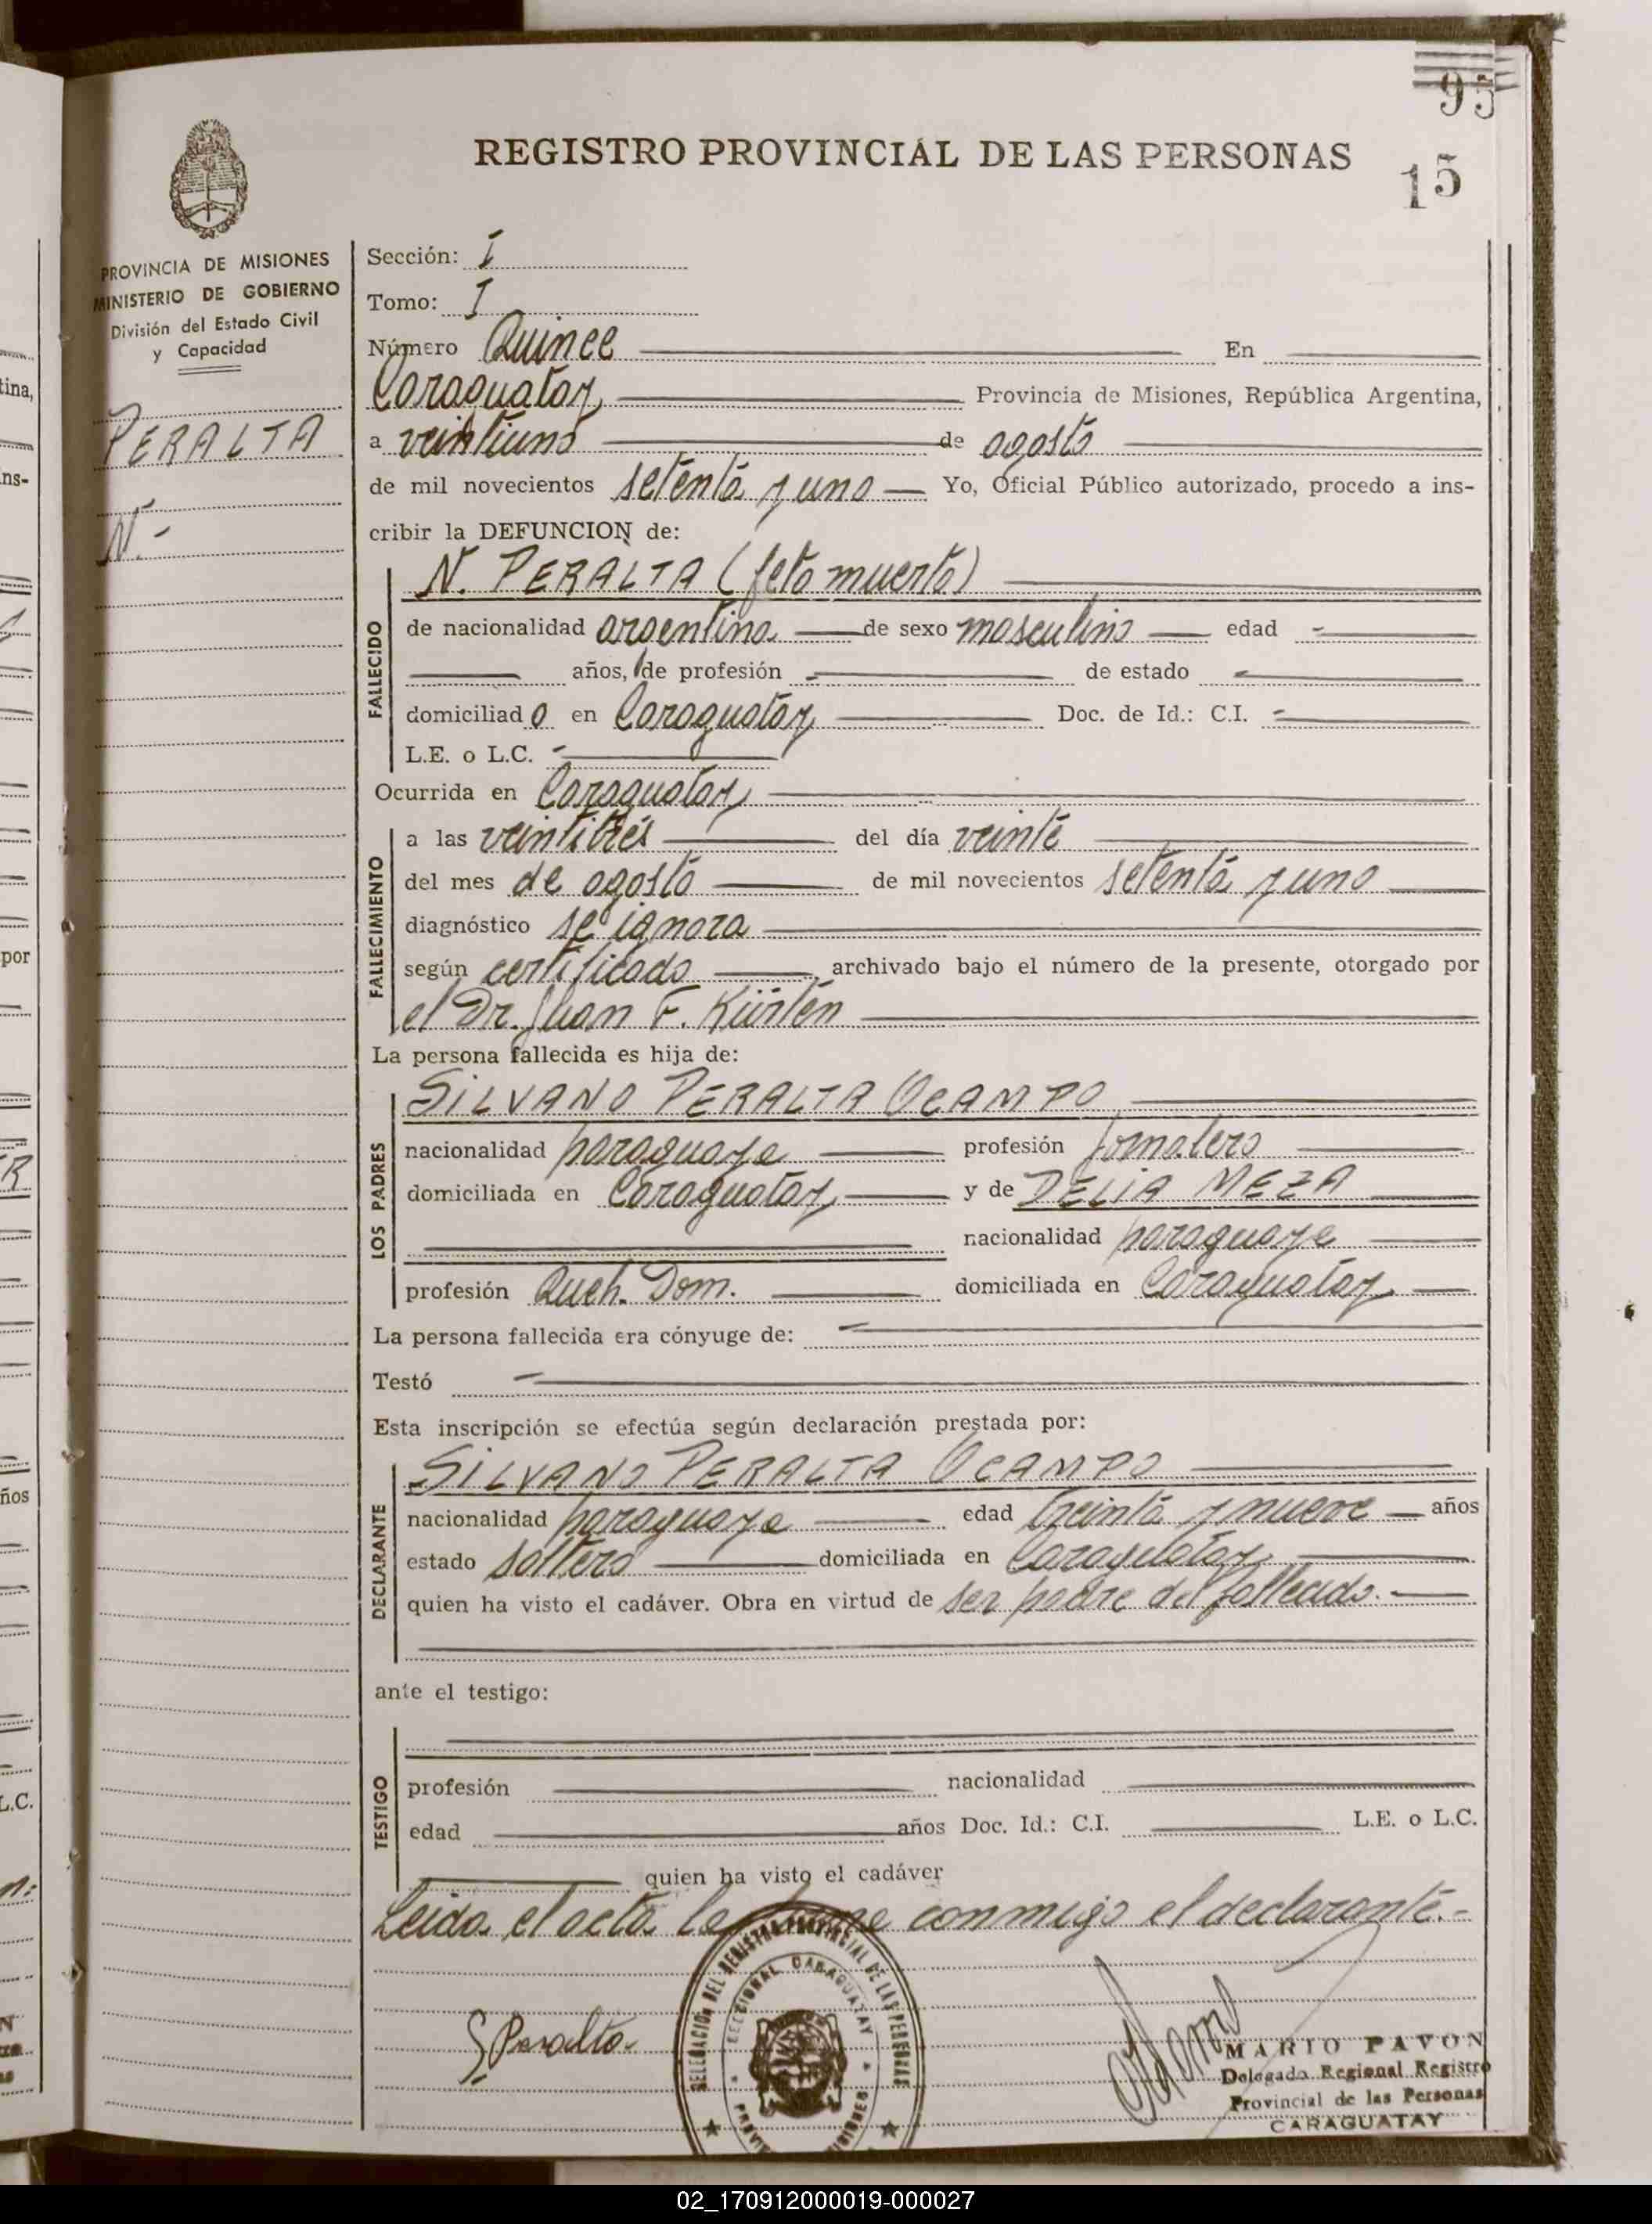 95
REGISTRO PROVINCIAL DE LAS PERSONAS
15
PROVINCIA DE MISIONES
MINISTERIO DE GOBIERNO
División del Estado Civil
y Capacidad
PERALTA
N.-
Sección: I
Tomo: I
Número Quince En
Caraguatay Provincia de Misiones, República Argentina,
a veintiuno de agosto
de mil novecientos setenta y uno Yo, Oficial Público autorizado, procedo a ins-
cribir la DEFUNCION de:
N. PERALTA (feto muerto)
FALLECIDO
de nacionalidad argentina de sexo masculino edad -
años, de profesión - de estado -
domiciliado en Caraguatay Doc. de Id.: C.I. -
L.E. o L.C. -
Ocurrida en Caraguatay
FALLECIMIENTO
a las veintitrés del día veinte
del mes de agosto de mil novecientos setenta y uno
diagnóstico se ignora
según certificado, archivado bajo el número de la presente, otorgado por
el Dr. Juan F. Kürten
La persona fallecida es hija de:
LOS PADRES
SILVANO PERALTA OCAMPO
nacionalidad paraguaya profesión Jornalero
domiciliada en Caraguatay y de DELIA MEZA
nacionalidad paraguaya
profesión Queh. Dom. domiciliada en Caraguatay
La persona fallecida era cónyuge de: -
Testó -
Esta inscripción se efectúa según declaración prestada por:
DECLARANTE
SILVANO PERALTA OCAMPO
nacionalidad paraguaya edad treinta y nueve años
estado soltero domiciliada en Caraguatay
quien ha visto el cadáver. Obra en virtud de ser padre del fallecido.-
ante el testigo:
TESTIGO
profesión nacionalidad
edad años Doc. Id.: C.I. L.E. o L.C.
quien ha visto el cadáver
Leida el acta la firma conmigo el declarante.-
DELEGACIÓN DEL REGISTRO PROVINCIAL DE LAS PERSONAS
SECCIONAL CARAGUATAY
S Peralta
MARIO PAVON
Delegado Regional Registro
Provincial de las Personas
CARAGUATAY
02_170912000019-000027